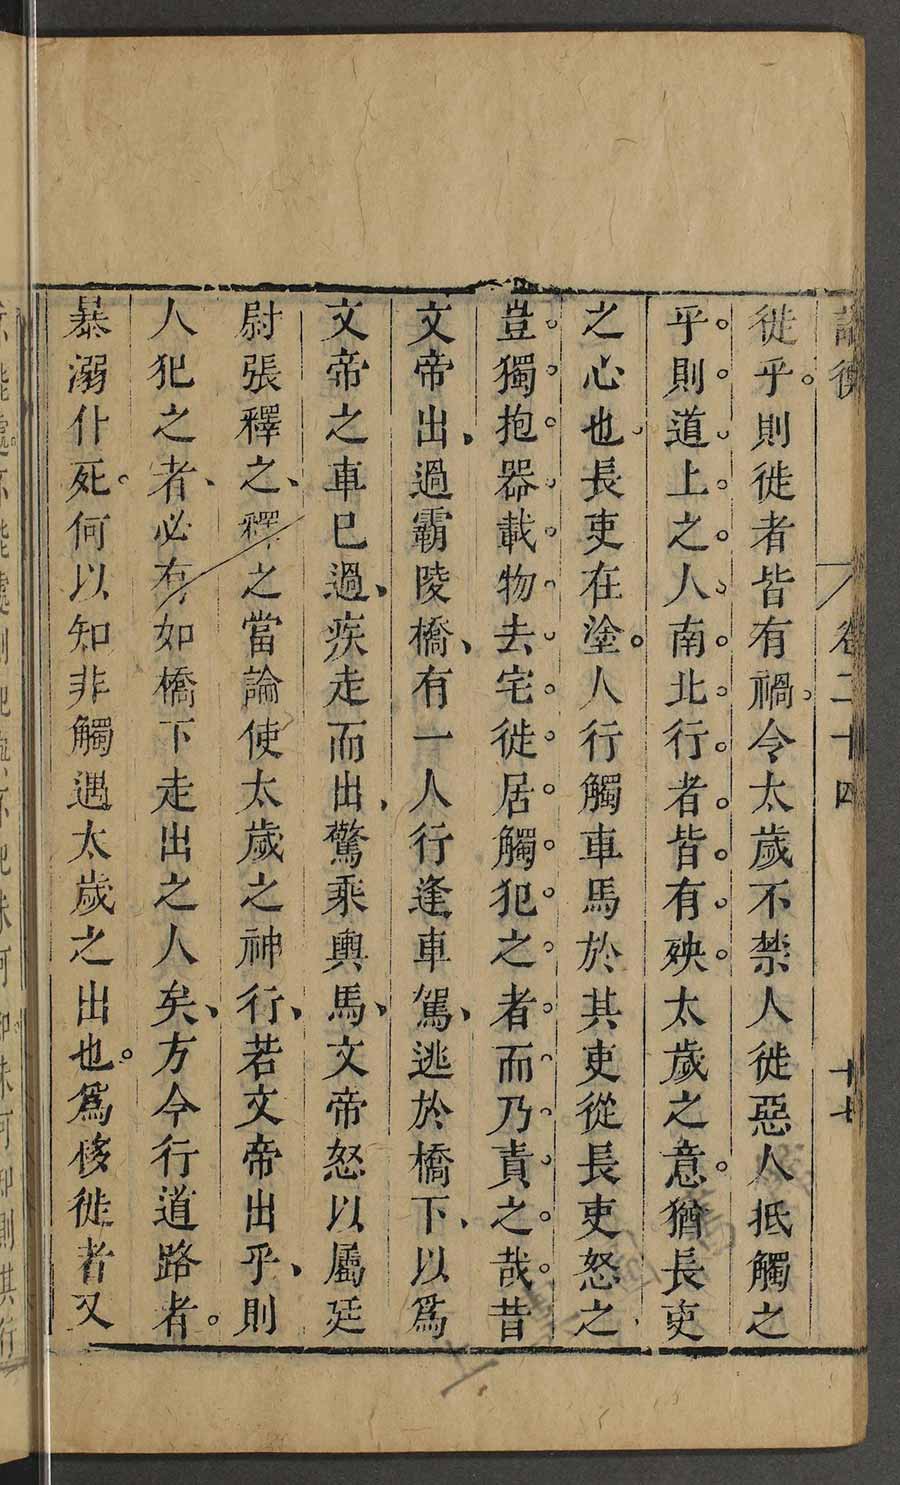 論衡 卷二十四 十七
徙乎。則徙者皆有禍。令太歲不禁人徙惡人抵觸之
乎。則道上之人南北行者皆有殃。太歲之意。猶長吏
之心也。長吏在塗。人行觸車馬於其吏從長吏怒之
豈獨抱器載物去宅徙居觸犯之者而乃責之哉。昔
文帝出、過霸陵橋、有一人行逢車駕、逃於橋下、以爲
文帝之車已過、疾走而出、驚乘輿馬、文帝怒以屬廷
尉張釋之、釋之當論使太歲之神行、若文帝出乎、則
人犯之者、必有如橋下走出之人矣、方今行道路者。
暴溺仆死。何以知非觸遇太歲之出也。爲移徙者又